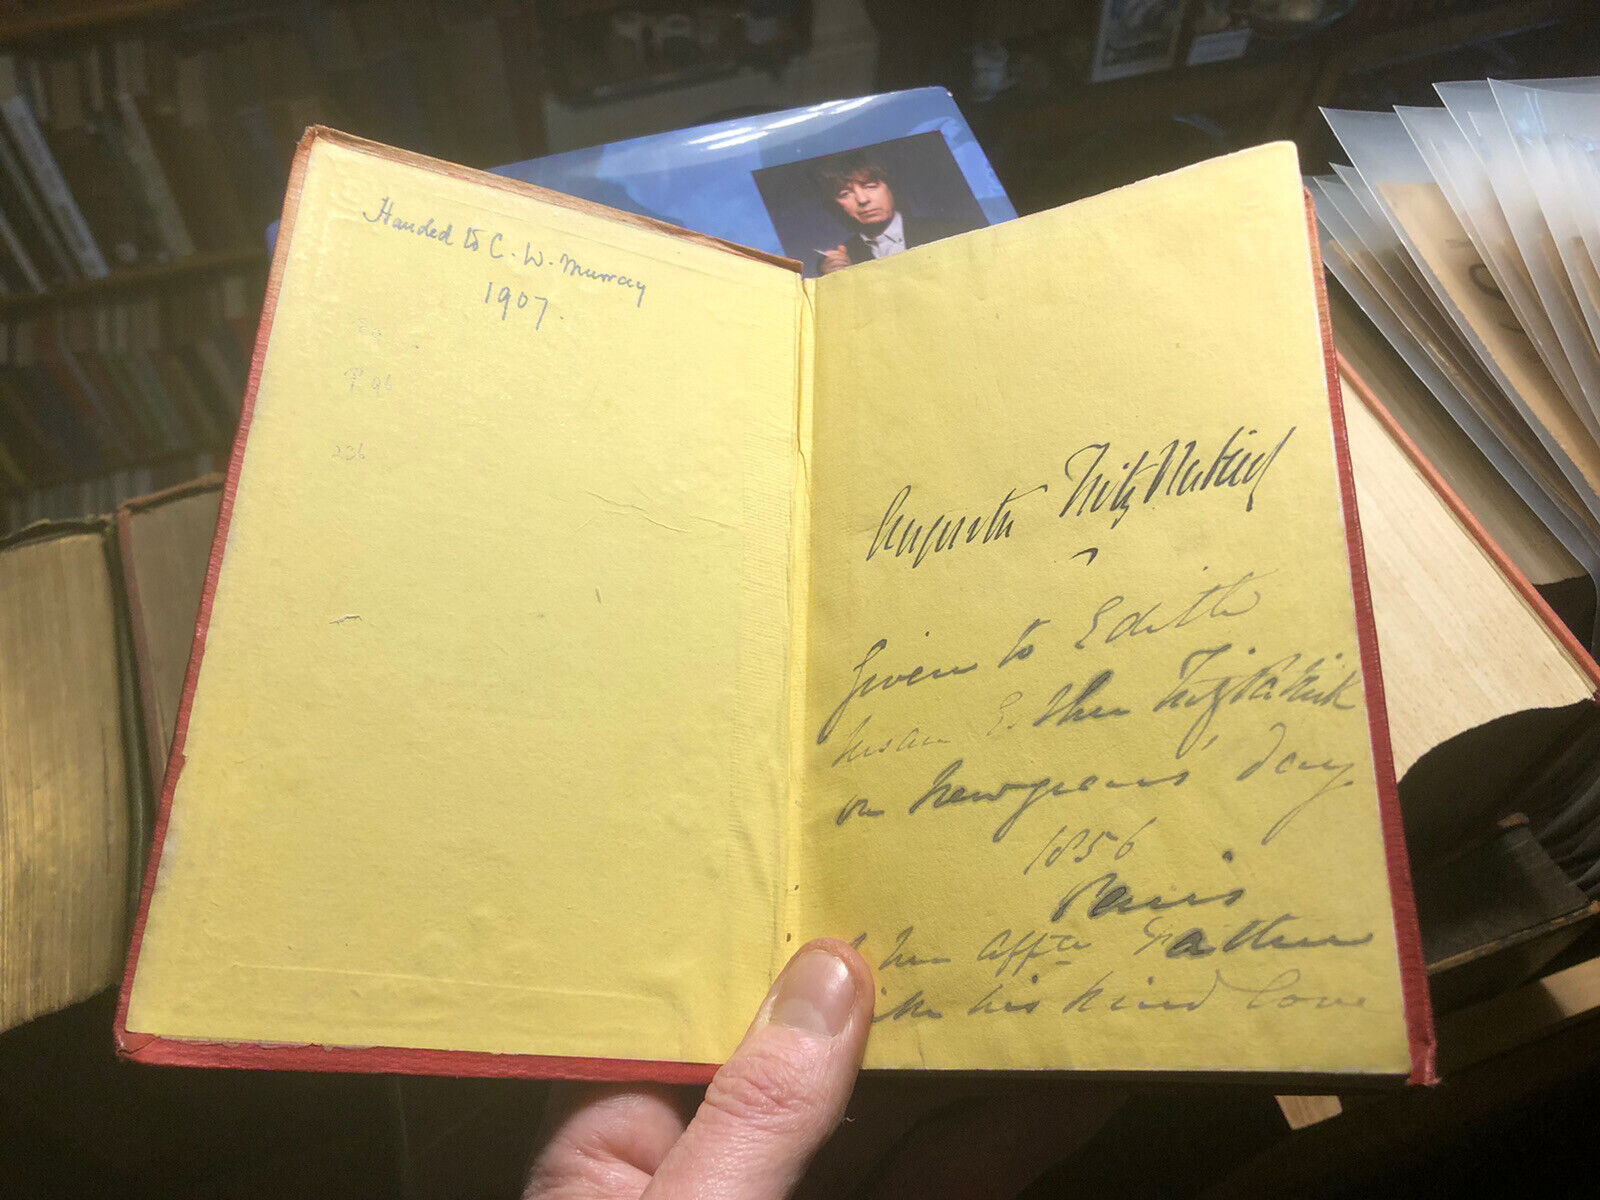 Handed to C. W. Murray
1907.
236
Augusta FitzPatrick
Given to Edith
Susan Esther FitzPatrick
on Newyears' day
1856
Paris
her affte Father
with his kind love